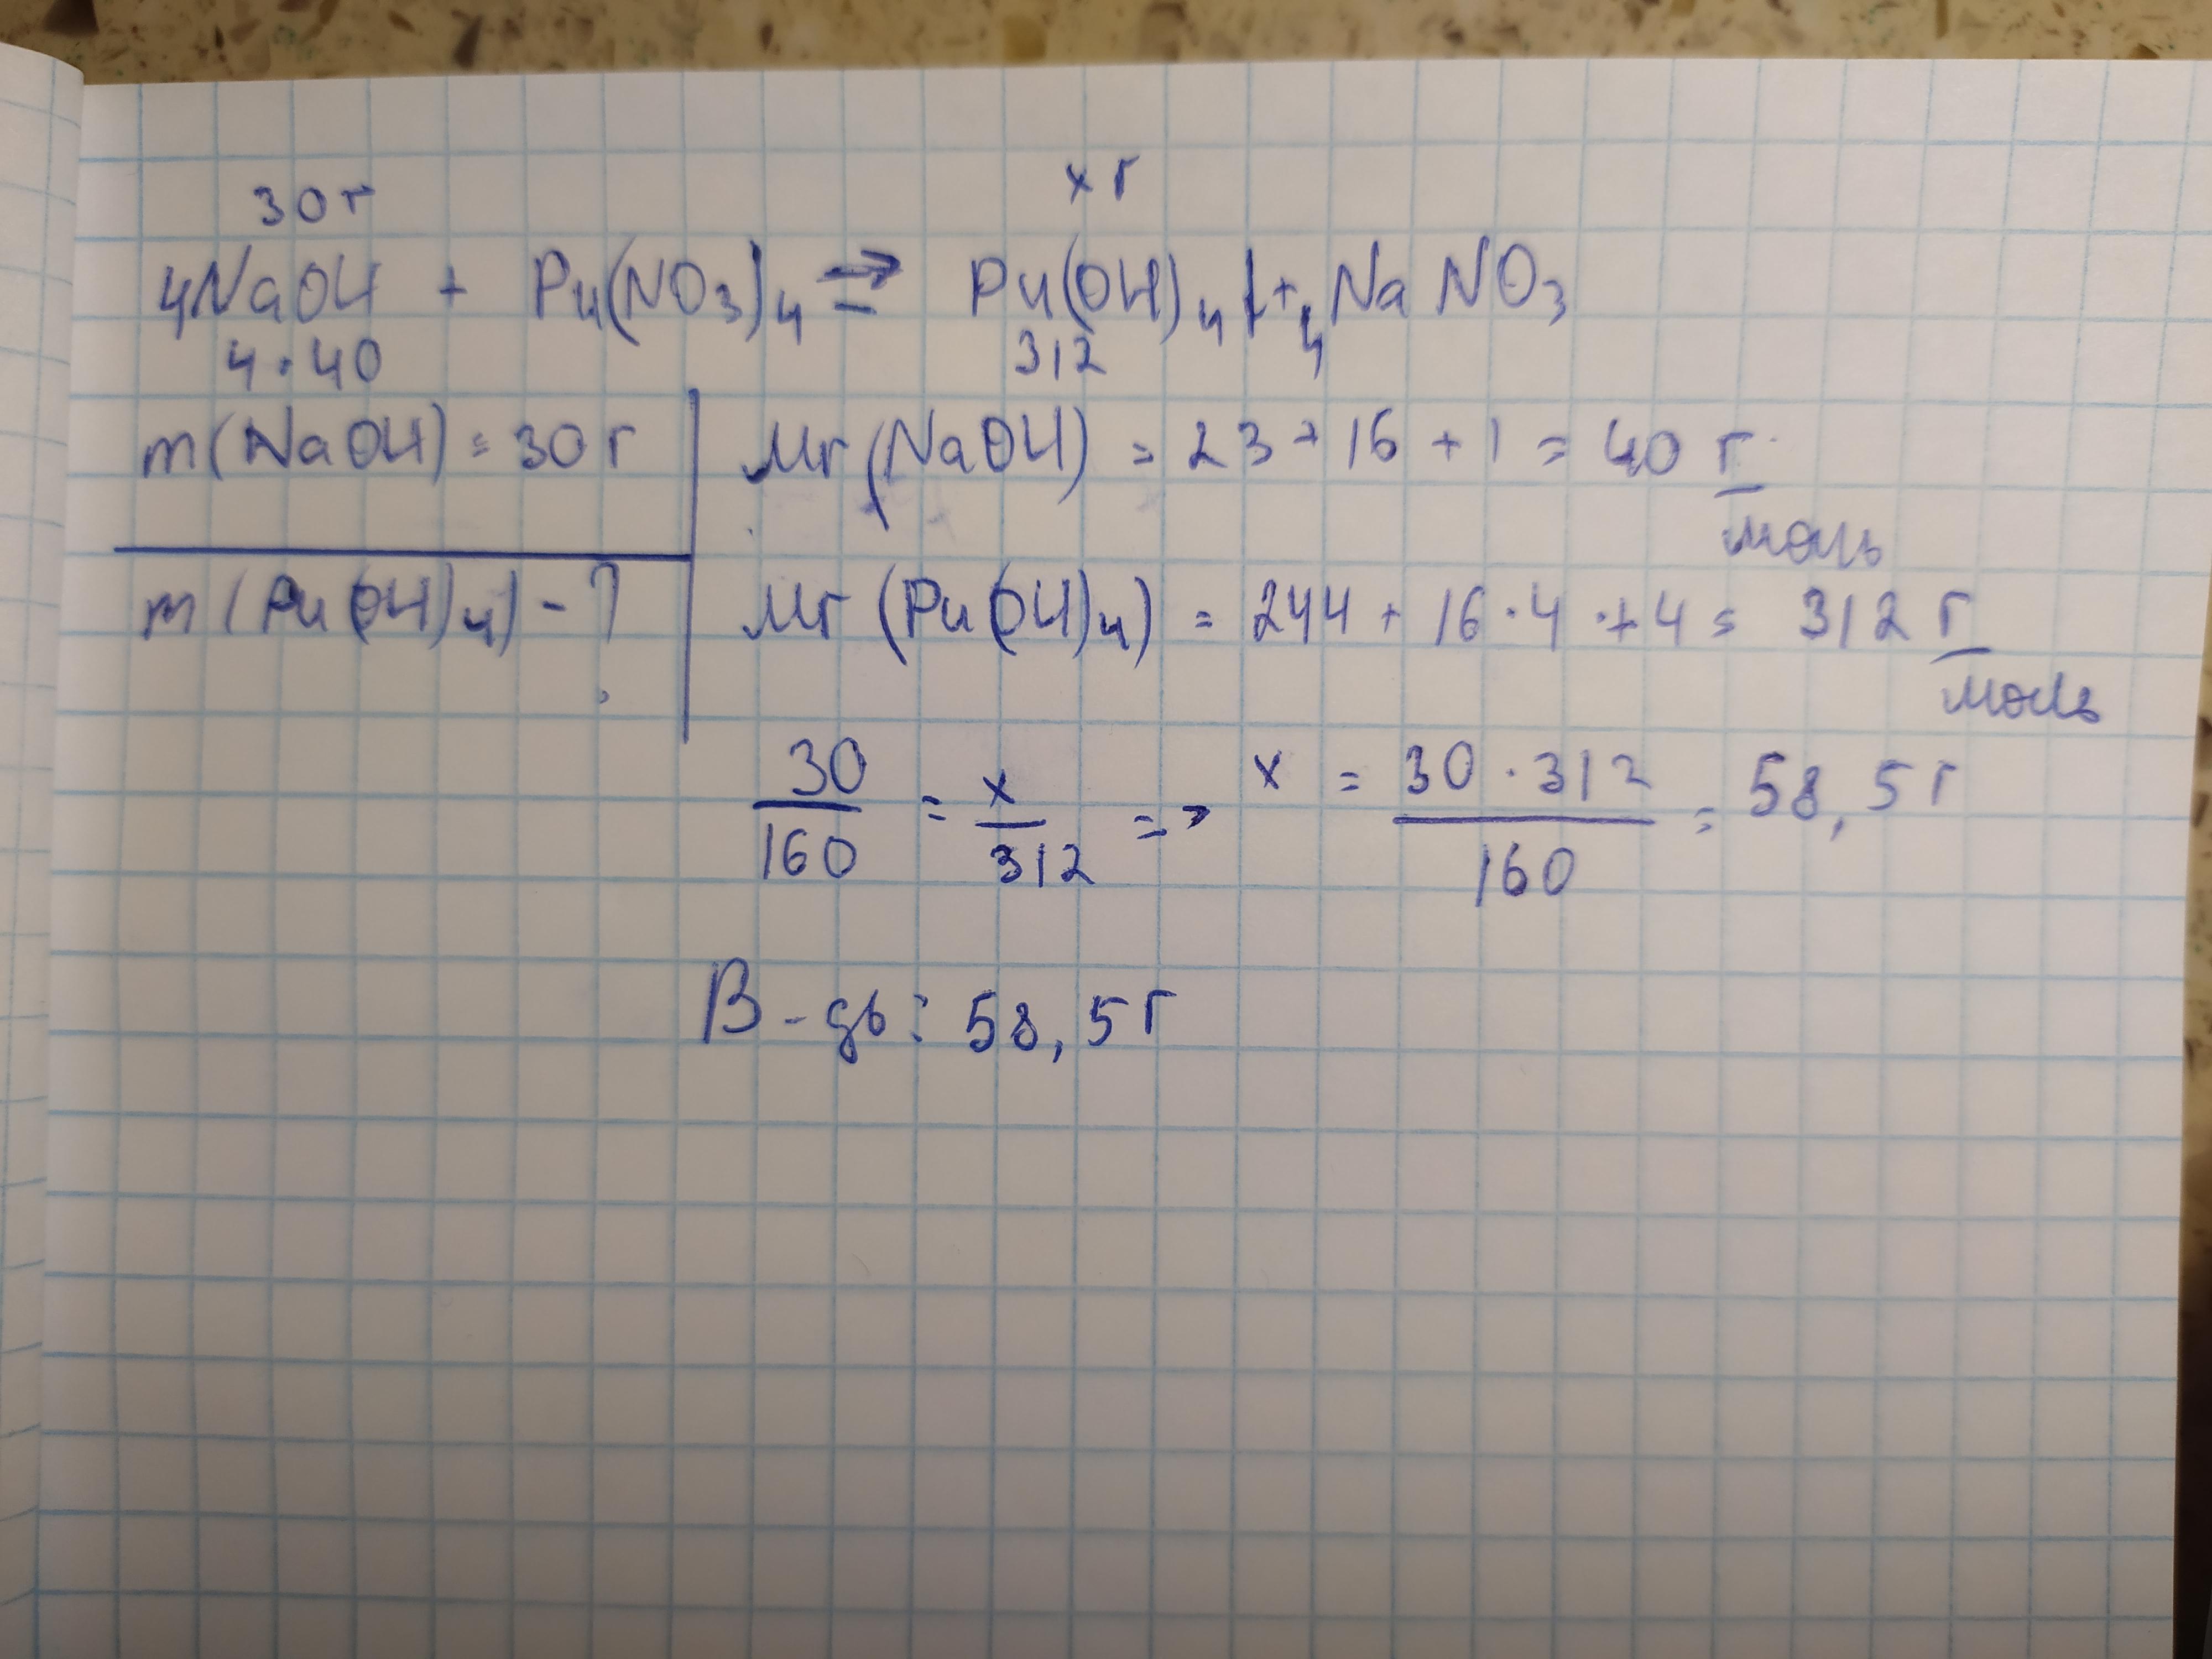 30 г x г
4NaOH + Pu(NO₃)₄ ⇒ Pu(OH)₄↓ + 4NaNO₃
4·40 312
m(NaOH) = 30 г Mr(NaOH) = 23 + 16 + 1 = 40 г/моль
m(Pu(OH)₄) - ? Mr(Pu(OH)₄) = 244 + 16·4·+4 = 312 г/моль
30/160 = x/312 => x = 30·312/160 = 58,5 г
В-дь: 58,5 г